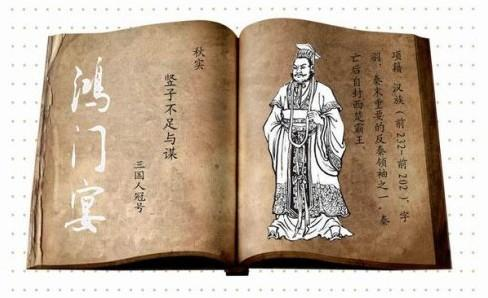 鸿门宴
秋实
竖子不足与谋
三国人冠号
项籍，汉族（前232-前202），字
羽，秦末重要的反秦领袖之一。秦
亡后自封西楚霸王